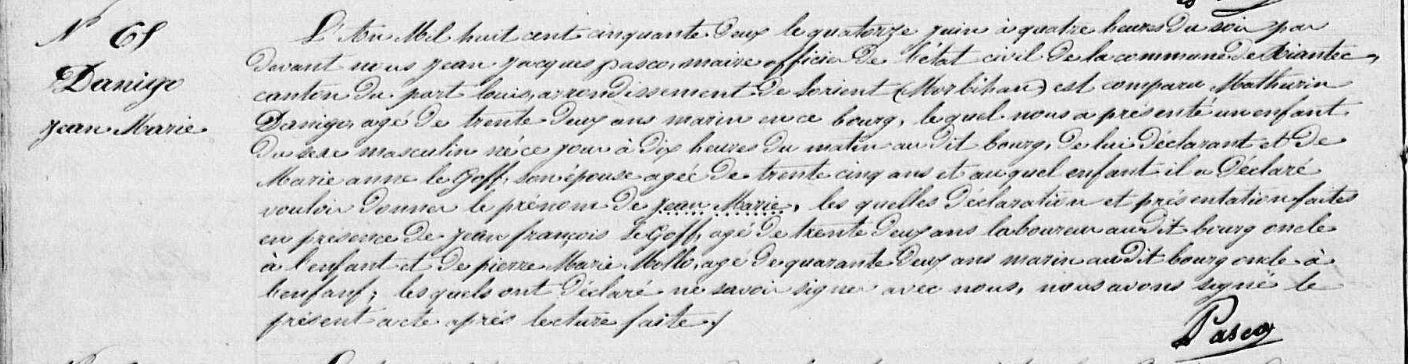 N° 65
Danigo
Jean Marie
L'An Mil huit cent cinquante deux le quatorze juin à quatre heures du soir par
devant nous jean jacques pasco, maire officier de l'état civil de la commune de Riantec,
canton du port louis, arrondissement de Lorient (Morbihan) est comparu Mathurin
Danigo, agé de trente deux ans marin en ce bourg, lequel nous a présenté un enfant
du sexe masculin né ce jour à dix heures du matin au dit bourg, de lui déclarant et de
Marie anne le Goff, son épouse agée de trente cinq ans et au quel enfant il a déclaré
vouloir donner le prénom de Jean Marie, les quelles déclaration et présentation faites
en présence de jean françois Le Goff, agé de trente deux ans laboureur au dit bourg oncle
à l'enfant et de pierre Marie Mollo, agé de quarante deux ans marin au dit bourg oncle à
l'enfant; les quels ont déclaré ne savoir signer avec nous, nous avons signé le
présent acte après lecture faite./
Pasco